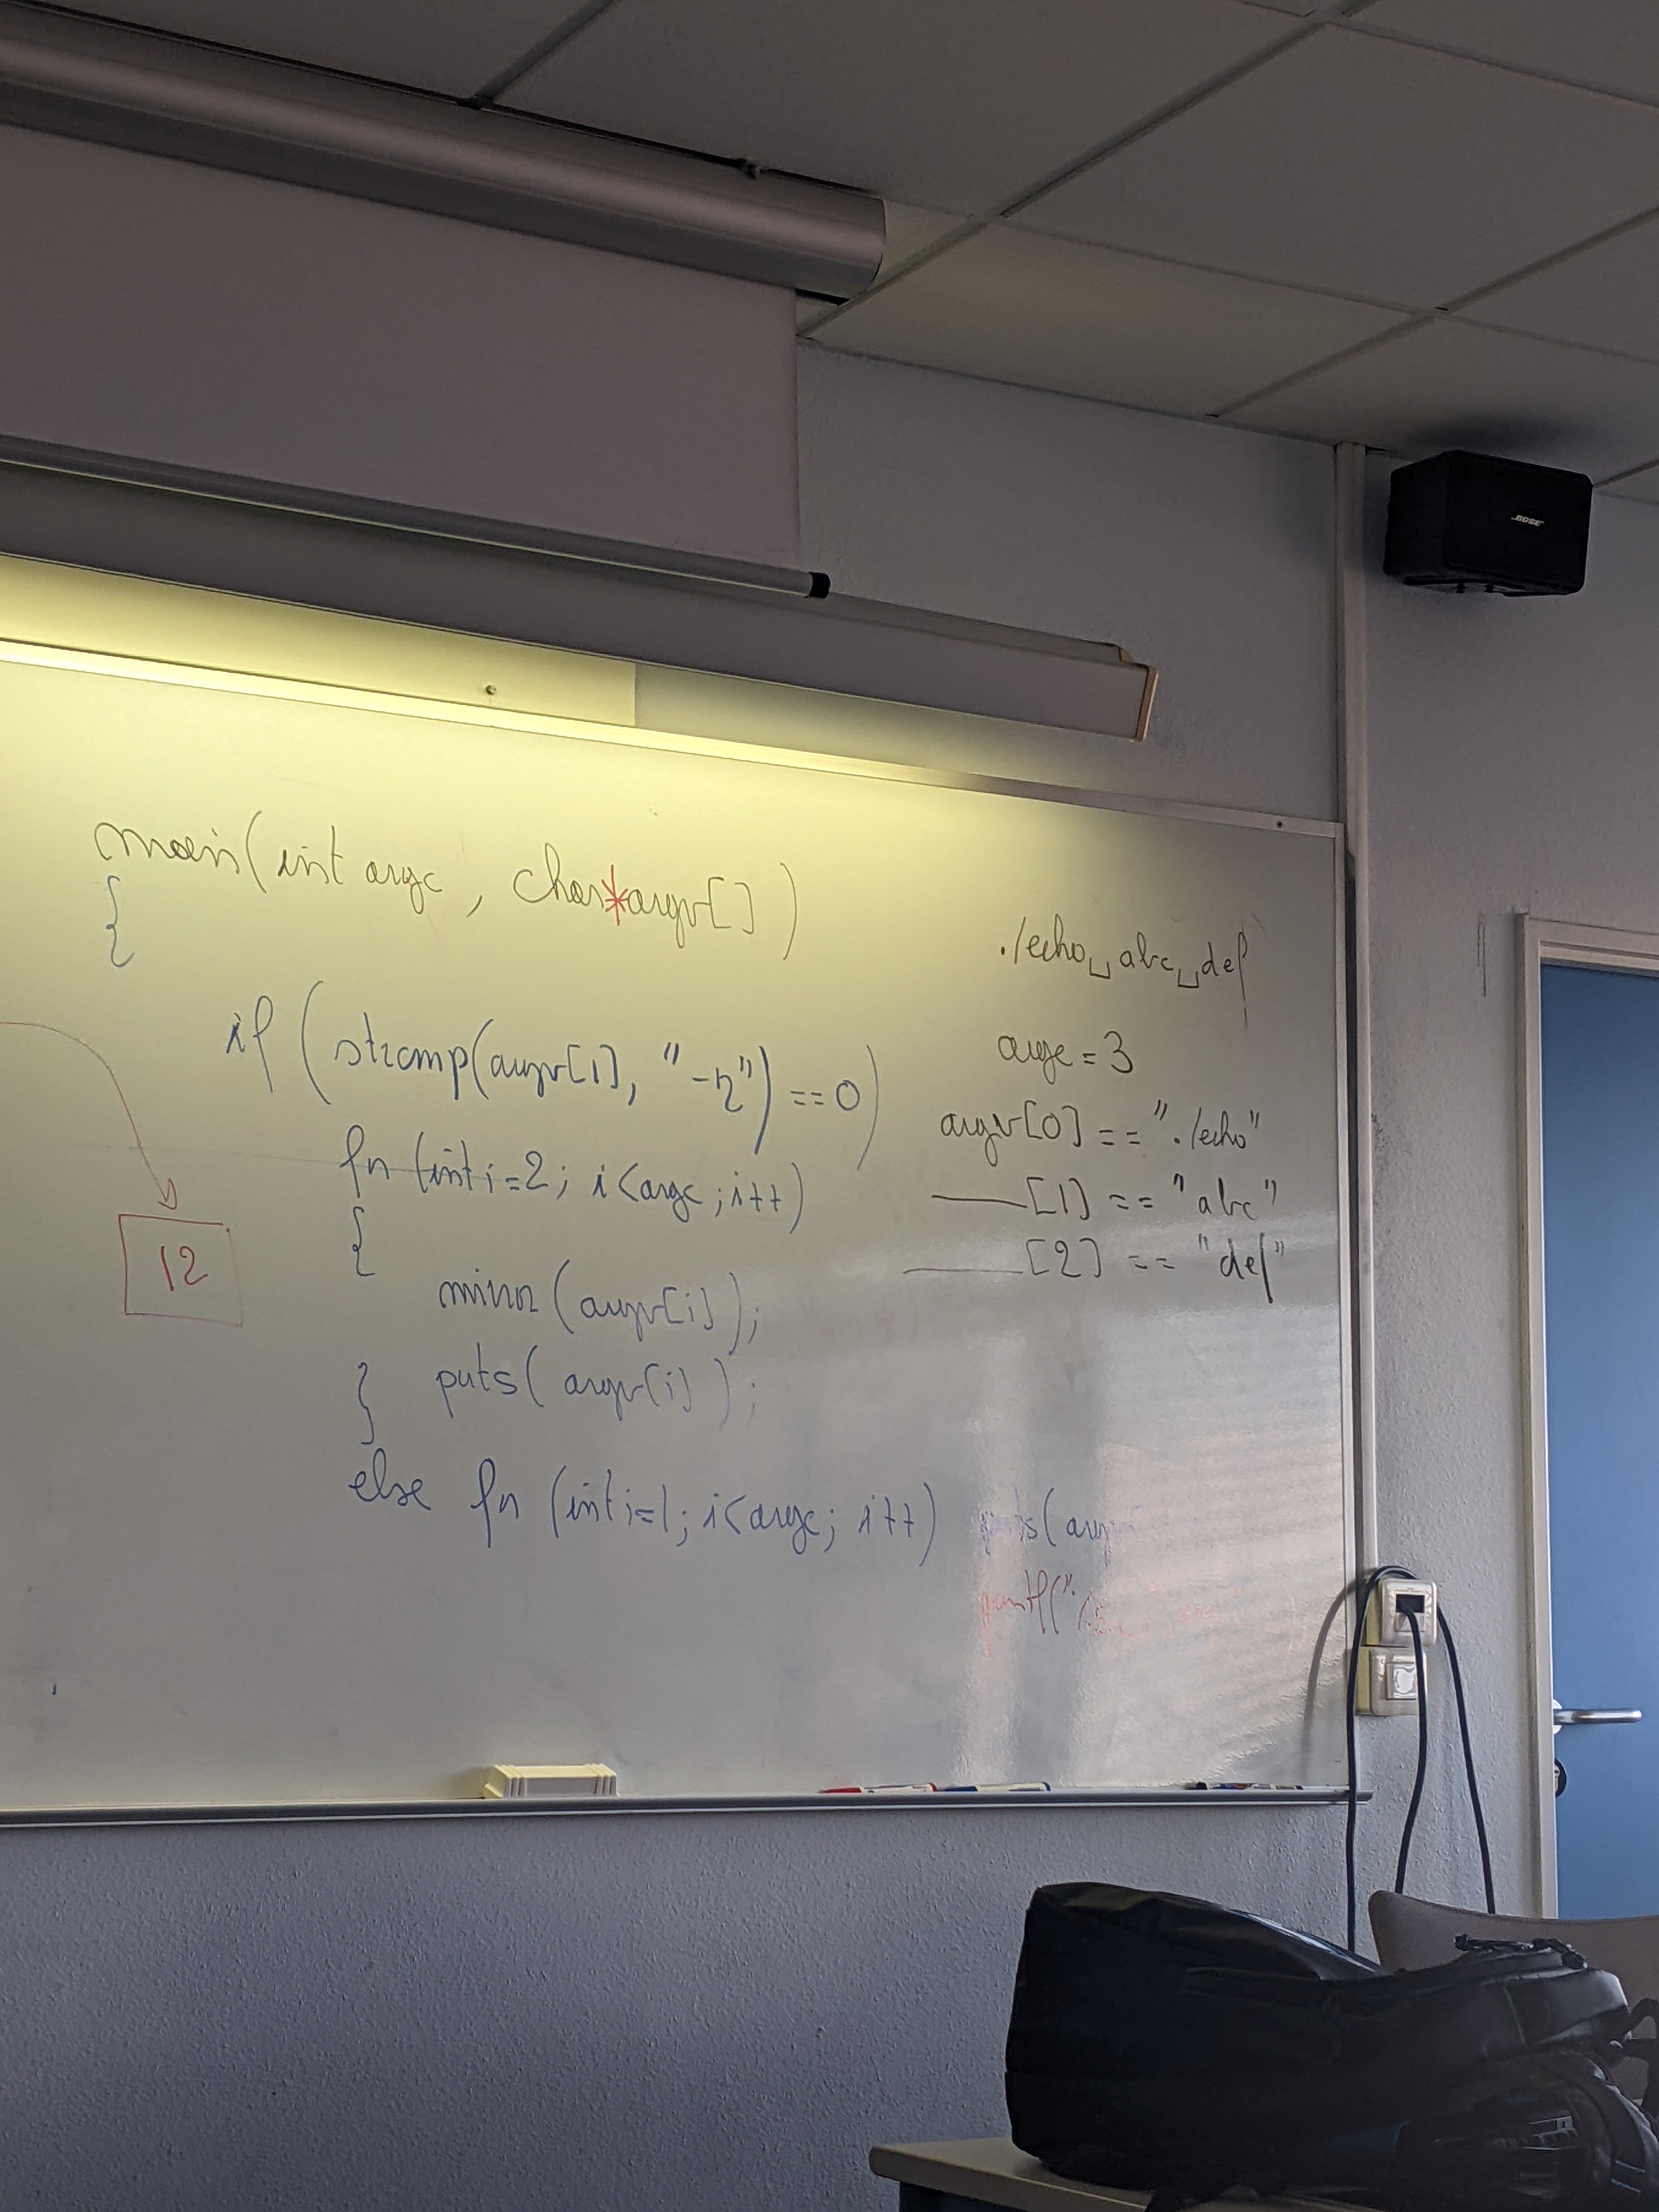 BOSE
main(int argc, char*argv[])
{
if (strcmp(argv[1], "-r") == 0)
for (int i=2; i<argc; i++)
{
miroir(argv[i]);
puts(argv[i]);
}
else for (int i=1; i<argc; i++) puts(argv
printf("%s
12
./echo␣abc␣def
argc = 3
argv[0] == "./echo"
[1] == "abc"
[2] == "def"